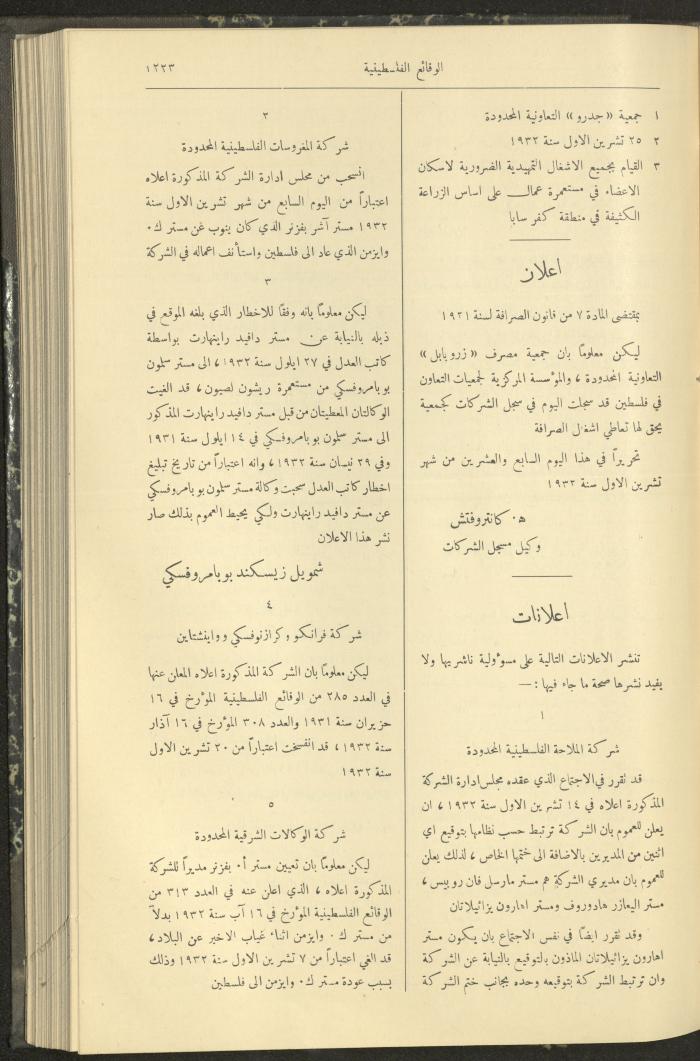 الوقائع الفلسطينية
١٢٢٣
١ جمعية «جدرو» التعاونية المحدودة
٢ ٢٥ تشرين الاول سنة ١٩٣٢
٣ القيام بجميع الاشغال التمهيدية الضرورية لاسكان
الاعضاء في مستعمرة عمال على اساس الزراعة
الكثيفة في منطقة كفر سابا
اعلان
بمقتضى المادة ٧ من قانون الصرافة لسنة ١٩٢١
ليكن معلوماً بان جمعية مصرف «زروبابل»
التعاونية المحدودة، والمؤسسة المركزية لجمعيات التعاون
في فلسطين قد سجلت اليوم في سجل الشركات كجمعية
يحق لها تعاطي اشغال الصرافة
تحريراً في هذا اليوم السابع والعشرين من شهر
تشرين الاول سنة ١٩٣٢
ه٠ كانتروفتش
وكيل مسجل الشركات
اعلانات
تنشر الاعلانات التالية على مسوؤلية ناشريها ولا
يفيد نشرها صحة ما جاء فيها :—
١
شركة الملاحة الفلسطينية المحدودة
قد تقرر في الاجتماع الذي عقده مجلس ادارة الشركة
المذكورة اعلاه في ١٤ تشرين الاول سنة ١٩٣٢، ان
يعلن للعموم بان الشركة ترتبط حسب نظامها بتوقيع اي
اثنين من المديرين بالاضافة الى ختمها الخاص، لذلك يعلن
للعموم بان مديري الشركة هم مستر مارسل فان روييس،
مستر اليعازر هادوروف ومستر اهارون يزائيلاتان
وقد تقرر ايضاً في نفس الاجتماع بان يكون مستر
اهارون يزائيلاتان الماذون بالتوقيع بالنيابة عن الشركة
وان ترتبط الشركة بتوقيعه وحده بجانب ختم الشركة
٢
شركة المغروسات الفلسطينية المحدودة
انسحب من مجلس ادارة الشركة المذكورة اعلاه
اعتباراً من اليوم السابع من شهر تشرين الاول سنة
١٩٣٢ مستر آشر بفزنر الذي كان ينوب عن مستر ك٠
وايزمن الذي عاد الى فلسطين واستأنف اعماله في الشركة
٣
ليكن معلوماً بانه وفقاً للاخطار الذي بلغه الموقع في
ذيله بالنيابة عن مستر دافيد راينهارت بواسطة
كاتب العدل في ٢٧ ايلول سنة ١٩٣٢، الى مستر سلمون
بوبامروفسكي من مستعمرة ريشون لصيون، قد الغيت
الوكالتان المعطيتان من قبل مستر دافيد راينهارت المذكور
الى مستر سلمون بوبامروفسكي في ١٤ ايلول سنة ١٩٣١
وفي ٢٩ نيسان سنة ١٩٣٢، وانه اعتباراً من تاريخ تبليغ
اخطار كاتب العدل سحبت وكالة مستر سلمون بوبامروفسكي
عن مستر دافيد راينهارت ولكي يحيط العموم بذلك صار
نشر هذا الاعلان
شمويل زيسكند بوبامروفسكي
٤
شركة فرانكو وكرازنوفسكي وواينشتاين
ليكن معلوماً بان الشركة المذكورة اعلاه المعلن عنها
في العدد ٢٨٥ من الوقائع الفلسطينية المؤرخ في ١٦
حزيران سنة ١٩٣١ والعدد ٣٠٨ المؤرخ في ١٦ آذار
سنة ١٩٣٢، قد انفسخت اعتباراً من ٢٠ تشرين الاول
سنة ١٩٣٢
٥
شركة الوكالات الشرقية المحدودة
ليكن معلوماً بان تعيين مستر أ٠ بفزنر مديراً للشركة
المذكورة اعلاه، الذي اعلن عنه في العدد ٣١٣ من
الوقائع الفلسطينية المؤرخ في ١٦ آب سنة ١٩٣٢ بدلاً
من مستر ك٠ وايزمن اثناء غياب الاخير عن البلاد،
قد الغي اعتباراً من ٧ تشرين الاول سنة ١٩٣٢ وذلك
بسبب عودة مستر ك٠ وايزمن الى فلسطين